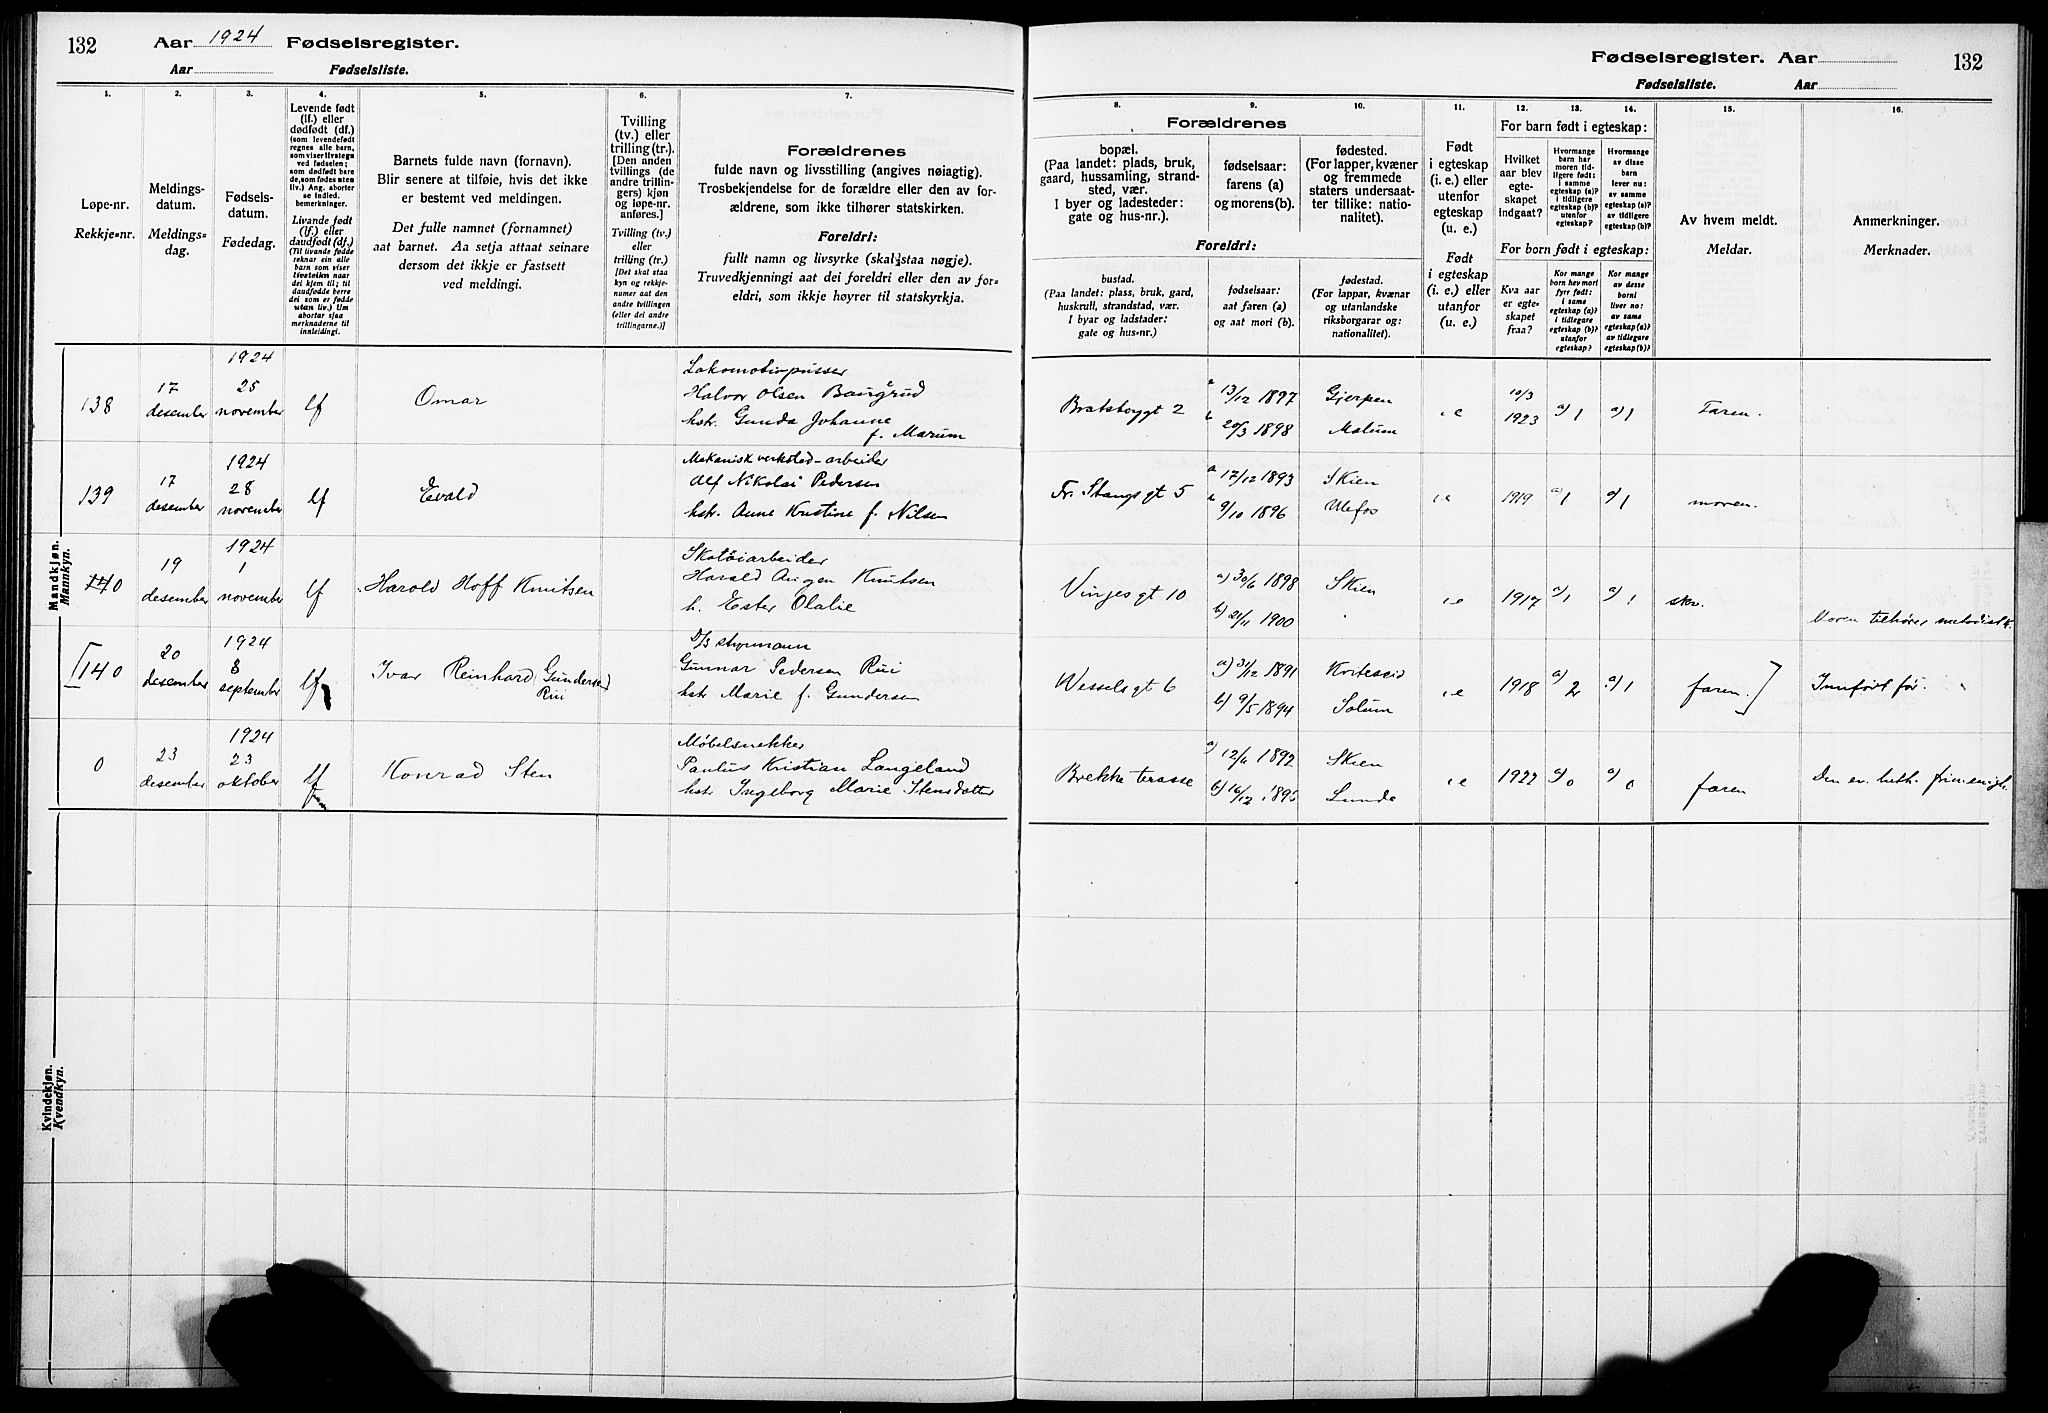 132
Aar 1924 Fødselsregister.
Aar Fødselsliste.
1.
2.
3.
4.
5.
6.
7.
Løpe-nr.
Rekkje-nr.
Meldings-
datum.
Meldings-
dag.
Fødsels-
datum.
Fødedag.
Levende født
(lf.) eller
dødfødt (df.)
(som levendefødt
regnes alle barn,
som viser livstegn
ved fødselen;
som dødfødt bare
de, som fødes uten
liv.) Ang. aborter
se indled.
bemerkninger.
Livande født
(lf.) eller
daudfødt (df.)
(Til livande fødde
reknar ein alle
barn som viser
livsteikn naar
dei kjem til; til
daudfødde berre
dei som er fødde
utan liv.) Um
abortar sjaa
merknaderne til
innleidingi.
Barnets fulde navn (fornavn).
Blir senere at tilføie, hvis det ikke
er bestemt ved meldingen.
Det fulle namnet (fornamnet)
aat barnet. Aa setja attaat seinare
dersom det ikkje er fastsett
ved meldingi.
Tvilling
(tv.) eller
trilling (tr.).
[Den anden
tvillings (de
andre trillin-
gers) kjøn
og løpe-nr.
anføres.]
Tvilling (tv.)
eller
trilling (tr.)
[Det skal staa
kyn og rekkje-
numer aat den
andre tvillingen
(eller dei andre
trillingarne.)]
Forældrenes
fulde navn og livsstilling (angives nøiagtig).
Trosbekjendelse for de forældre eller den av for-
ældrene, som ikke tilhører statskirken.
Foreldri:
fullt namn og livsyrke (skal staa nøgje).
Truvedkjenningi aat dei foreldri eller den av for-
eldri, som ikkje høyrer til statskyrkja.
Mandkjøn.
Mannkyn.
138
17
desember
1924
25
november
lf
Omar
Lokomotivpusser
Halvor Olsen Baugrud
hstr. Gunda Johanne
f. Marum
139
17
desember
1924
28
november
lf
Evald
Mekanisk verksted-arbeider
Alf Nikolai Pedersen
hstr. Anne Kristine f. Nilsen
140
19
desember
1924
1
november
lf
Harald Hoff Knutsen
Skotøiarbeider
Harald Knutsen
h. Ester Olalie
140
20
desember
1924
8
september
lf
Ivar Reinhard Gundersen
Rui
D/S styrmann
Gunnar Pedersen Rui
hstr Marie f. Gundersen
0
23
desember
1924
23
oktober
lf
Konrad Sten
Møbelsnekker
Paulus Kristian Langeland
hstr Ingeborg Marie Stensdotter
Kvindekjøn.
Kvendkyn.
Fødselsregister. Aar
132
Fødselsliste. Aar
8.
9.
10.
11.
12.
13.
14.
15.
16.
Forældrenes
bopæl.
(Paa landet: plads, bruk,
gaard, hussamling, strand-
sted, vær.
I byer og ladesteder:
gate og hus-nr.).
fødselsaar:
farens (a)
og morens (b).
fødested.
(For lapper, kvæner
og fremmede
staters undersaat-
ter tillike: natio-
nalitet).
Foreldri:
bustad.
(Paa landet: plass, bruk, gard,
huskrull, strandstad, vær.
I byar og ladstader:
gate og hus-nr.)
fødselsaar:
aat faren (a)
og aat mori (b).
fødestad.
(For lappar, kvænar
og utanlandske
riksborgarar og:
nationalitet).
Født
i egteskap
(i. e.) eller
utenfor
egteskap
(u. e.)
Født
i egteskap
(i. e.) eller
utanfor
(u. e.)
For barn født i egteskap:
Hvilket
aar blev
egte-
skapet
indgaat?
Hvormange
barn har
moren tid-
ligere født:
i samme
egteskap (a)?
i tidligere
egteskap (b)?
utenfor
egteskap?
Hvormange
av disse
barn
lever nu:
av samme
egteskap (a)?
av tidligere
egteskap (b)?
For born født i egteskap:
Kva aar
er egte-
skapet
fraa?
Kor mange
born hev mori
fyrr født:
i same
egteskap (a)?
i tidlegare
egteskap (b)?
utanfor
egteskap?
Kor mange
av desse
borni
liver no:
av same
egteskap (a)?
av tidlegare
egteskap (b)?
Av hvem meldt.
Meldar.
Anmerkninger.
Merknader.
Bratsbergt 2
a 13/12 1897
b 20/3 1898
Gjerpen
Melum
i e
10/3
1923
a) 1
a) 1
Faren.
Fr. Stangsgt 5
a 17/12 1893
b 9/10 1896
Skien
Ulefos
i e
1919
a) 1
a) 1
moren.
Vinjesgt 10
a) 30/6 1898
b) 21/11 1900
Skien
"
i e
1917
a) 1
a) 1
skr.
Moren tilhører metodistk.
Wesselsgt 6
a) 31/12 1891
b) 9/5 1894
Solum
i e
1918
a) 2
a) 1
faren.
Innført før.
Brekke terasse
a) 12/1 1892
b) 16/12
Skien
Lunde
i e
1922
a) 0
a) 0
faren
Den ev. luth. frimenigh.